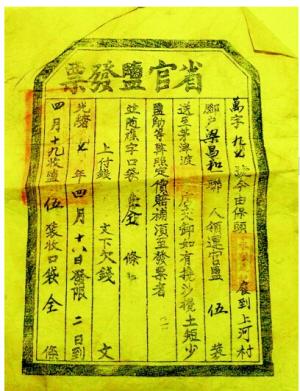 省官鹽發票
萬字 九 號今由保頭 雇到上河村
腳户梁昌和聯 人領運官鹽 伍 裝
送至茅津渡 交卸如有攙沙攪土短少
鹽觔等弊照定價賠補須至發票者
並随樵字口袋 全 條
上付錢 文下欠錢 文
光緒 年四月十八日發限二日到
四月十九收鹽伍裝收口袋全條